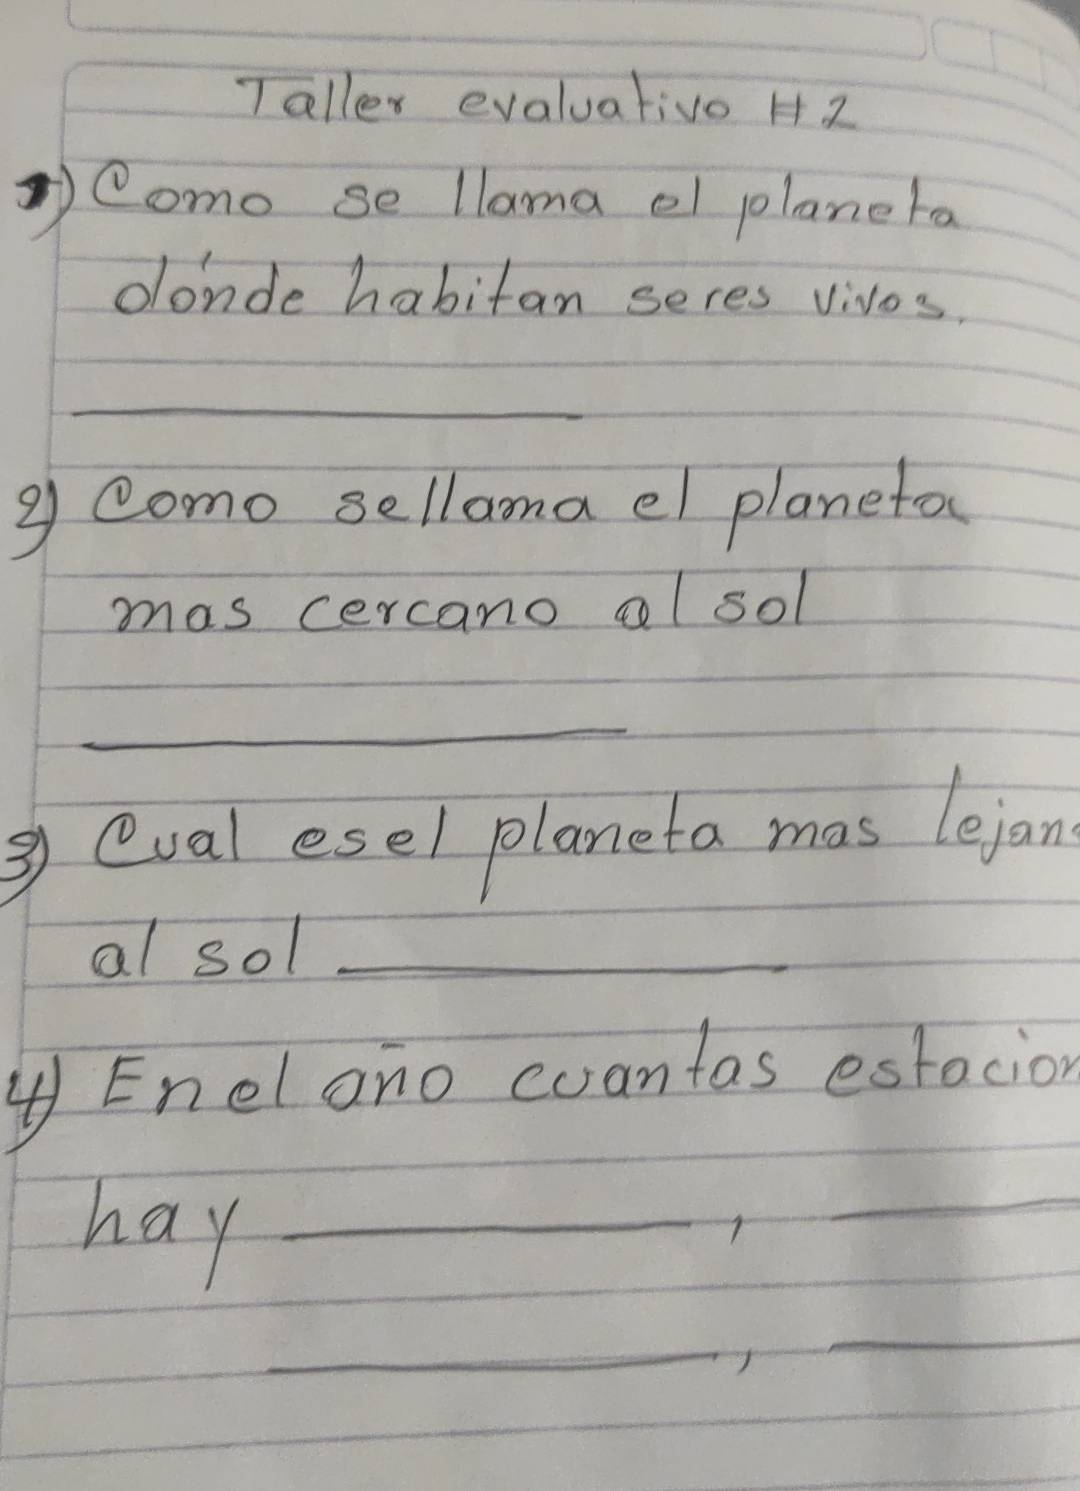 Taller evaluativo #2
1) Como se llama el planeta
dónde habitan seres vivos.
2) Como sellama el planeta
mas cercano al sol
3) Cual esel planeta mas lejano
al sol
4) Enel año cuantas estacion
hay ,
,